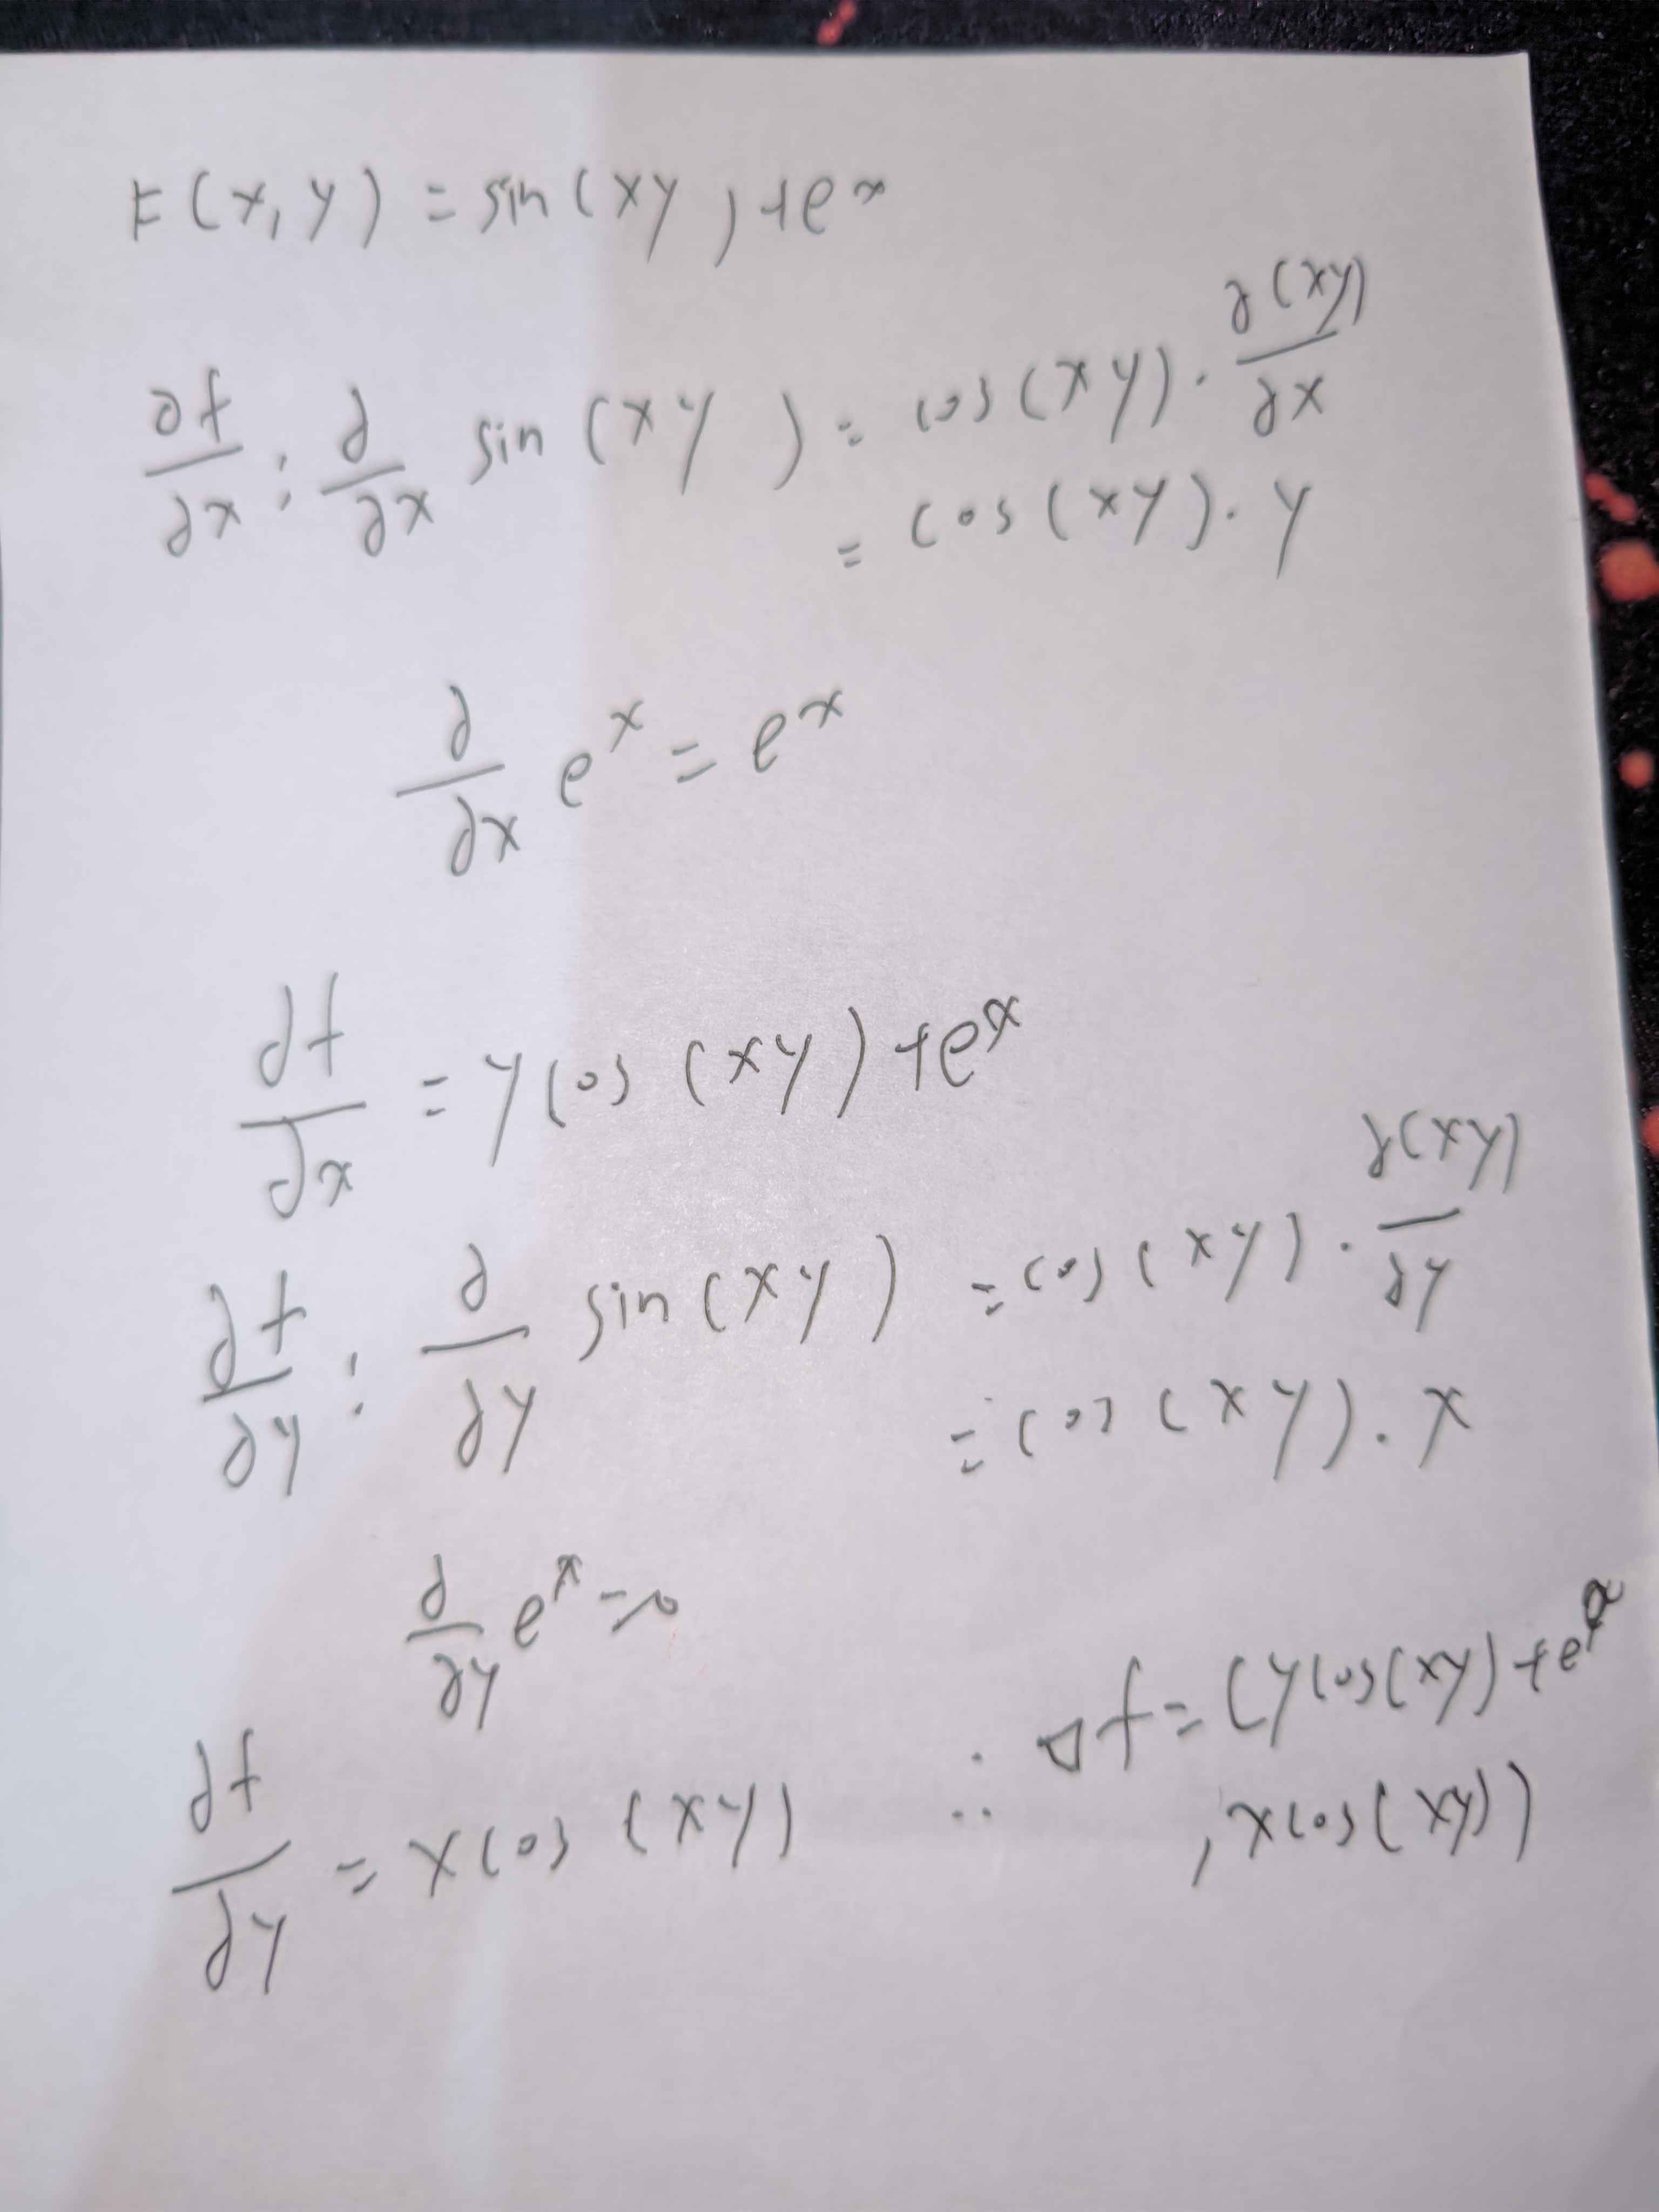 F(x,y) = sin(xy) + e^x
∂f/∂x : ∂/∂x sin(xy) = cos(xy) · ∂(xy)/∂x
= cos(xy) · y
∂/∂x e^x = e^x
∂f/∂x = y cos(xy) + e^x
∂f/∂y : ∂/∂y sin(xy) = cos(xy) · ∂(xy)/∂y
= cos(xy) · x
∂/∂y e^x = 0
∂f/∂y = x cos(xy)
∴ ∇f = (y cos(xy) + e^x
, x cos(xy))